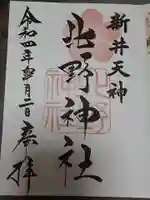 新井天神
北野神社
令和四年四月二日 奉拝